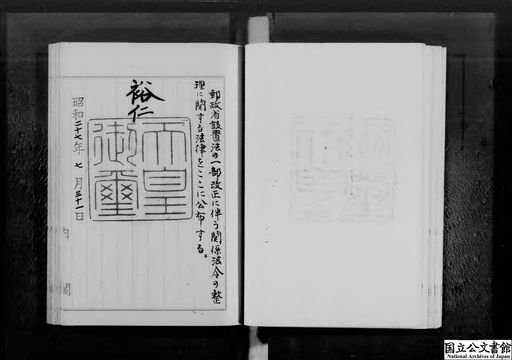 郵政省設置法の一部改正に伴う関係法令の整
理に関する法律をここに公布する。
裕仁
天皇
御璽
昭和二十七年七月三十一日
内閣
国立公文書館
National Archives of Japan